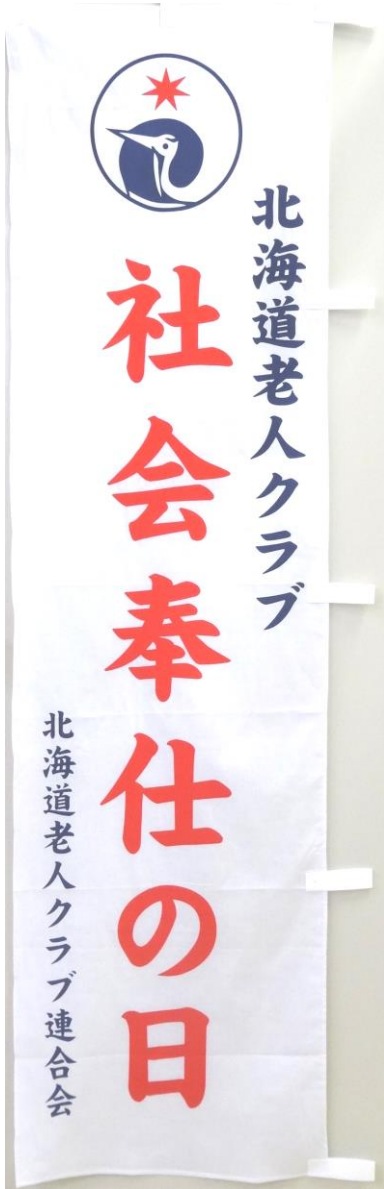 北海道老人クラブ
社会奉仕の日
北海道老人クラブ連合会